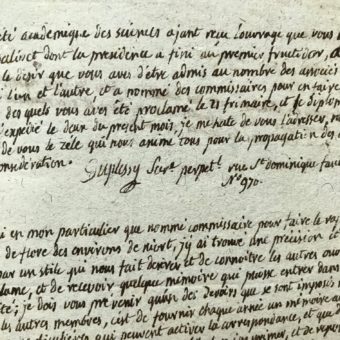 été academique des sciences ajant recu l'ouvrage que vous
alivet dont la presidence a fini au premier fructidor, a
le desir que vous aves d'être admis au nombre des associés
i l'un et l'autre, et a nommé des commissaires pour en faire
des quels vous aves été proclamé le 21 frimaire, et le diplome
expedié le deux du present mois, je me hate de vous l'adresser,
dé vous le zele qui nous anime tous pour la propagation des
onsidération.
Duplessy Secre. perpetl. rue St. dominique fau
No 970.
i en mon particulier que nommé commissaire pour faire le ra
de flore des environs de niort, j'y ai trouvé une precision et
par un stile qui nous fait desirer et de connoitre les autres ou
lame, et de recevoir quelque mémoire qui puisse entrer dans
té; je dois vous prevenir qu'un des devoirs que se sont imposés
les autres membres, c'est de fournir chaque année un mémoire au
diculiers qui peuvent activer la correspondance, et que
imer, et de